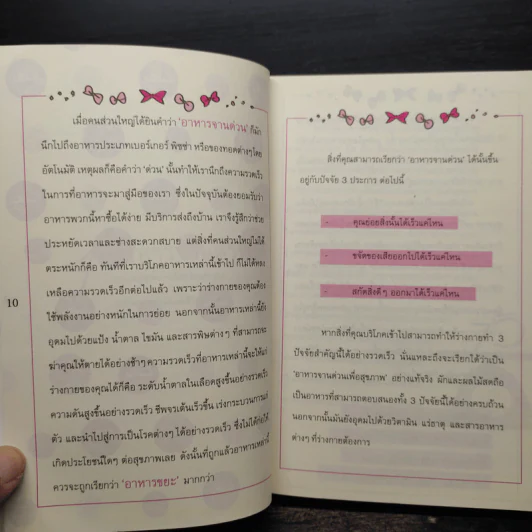 เมื่อคนส่วนใหญ่ได้ยินคำว่า 'อาหารจานด่วน' ก็มัก
นึกไปถึงอาหารประเภทเบอร์เกอร์ พิซซ่า หรือของทอดต่างๆโดย
อัตโนมัติ เหตุผลก็คือคำว่า 'ด่วน' นั้นทำให้เรานึกถึงความรวดเร็ว
ในการที่อาหารจะมาสู่มือของเรา ซึ่งในปัจจุบันต้องยอมรับว่า
อาหารพวกนี้หาซื้อได้ง่าย มีบริการส่งถึงบ้าน เราจึงรู้สึกว่าช่วย
ประหยัดเวลาและช่างสะดวกสบาย แต่สิ่งที่คนส่วนใหญ่ไม่ได้
ตระหนักก็คือ ทันทีที่เราบริโภคอาหารเหล่านี้เข้าไป ก็ไม่ได้หลง
เหลือความรวดเร็วอีกต่อไปแล้ว เพราะว่าร่างกายของคุณต้อง
ใช้พลังงานอย่างหนักในการย่อย นอกจากนั้นอาหารเหล่านี้ยัง
อุดมไปด้วยแป้ง น้ำตาล ไขมัน และสารพิษต่างๆ ที่สามารถจะ
ฆ่าคุณให้ตายได้อย่างช้าๆ ความรวดเร็วที่อาหารเหล่านี้จะให้แก่
ร่างกายของคุณได้ก็คือ ระดับน้ำตาลในเลือดสูงขึ้นอย่างรวดเร็ว
ความดันสูงขึ้นอย่างรวดเร็ว ชีพจรเต้นเร็วขึ้น เร่งกระบวนการแก่
ตัว และนำไปสู่การเป็นโรคต่างๆ ได้อย่างรวดเร็ว ซึ่งไม่ได้ก่อให้
เกิดประโยชน์ใดๆ ต่อสุขภาพเลย ดังนั้นที่ถูกแล้วอาหารเหล่านี้
ควรจะถูกเรียกว่า 'อาหารขยะ' มากกว่า
10
สิ่งที่คุณสามารถเรียกว่า 'อาหารจานด่วน' ได้นั้นขึ้น
อยู่กับปัจจัย 3 ประการ ต่อไปนี้
- คุณย่อยสิ่งนั้นได้เร็วแค่ไหน
- ขจัดของเสียออกไปได้เร็วแค่ไหน
- สกัดสิ่งดีๆ ออกมาได้เร็วแค่ไหน
หากสิ่งที่คุณบริโภคเข้าไปสามารถทำให้ร่างกายทำ 3
ปัจจัยสำคัญนี้ได้อย่างรวดเร็ว นั่นแหละถึงจะเรียกได้ว่าเป็น
'อาหารจานด่วนเพื่อสุขภาพ' อย่างแท้จริง ผักและผลไม้สดถือ
เป็นอาหารที่สามารถตอบสนองทั้ง 3 ปัจจัยนี้ได้อย่างครบถ้วน
นอกจากนั้นมันยังอุดมไปด้วยวิตามิน แร่ธาตุ และสารอาหาร
ต่างๆ ที่ร่างกายต้องการ